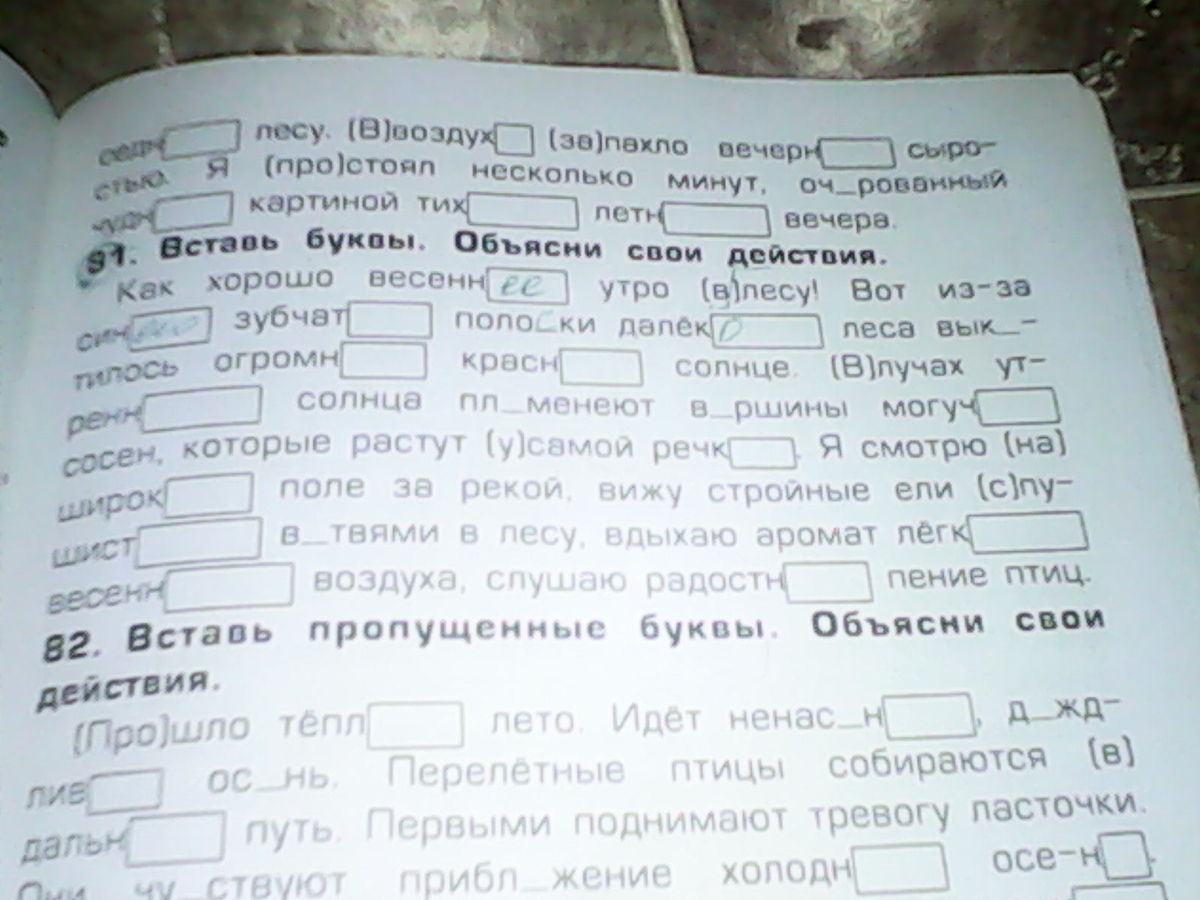 седн лесу. (В)воздух (за)пахло вечерн сыро-
стью. Я (про)стоял несколько минут, оч_рованный
чудн картиной тих летн вечера.
81. Вставь буквы. Объясни свои действия.
Как хорошо весенн ее утро (в)лесу! Вот из-за
син зубчат полоски далёк о леса вык_-
тилось огромн красн солнце. (В)лучах ут-
ренн солнца пл_менеют в_ршины могуч
сосен, которые растут (у)самой речк . Я смотрю (на)
широк поле за рекой, вижу стройные ели (с)пу-
шист в_твями в лесу, вдыхаю аромат лёгк
весенн воздуха, слушаю радостн пение птиц.
82. Вставь пропущенные буквы. Объясни свои
действия.
(Про)шло тёпл лето. Идёт ненас_н , д_жд-
лив ос_нь. Перелётные птицы собираются (в)
дальн путь. Первыми поднимают тревогу ласточки.
Они чу_ствуют прибл_жение холодн осе-н .